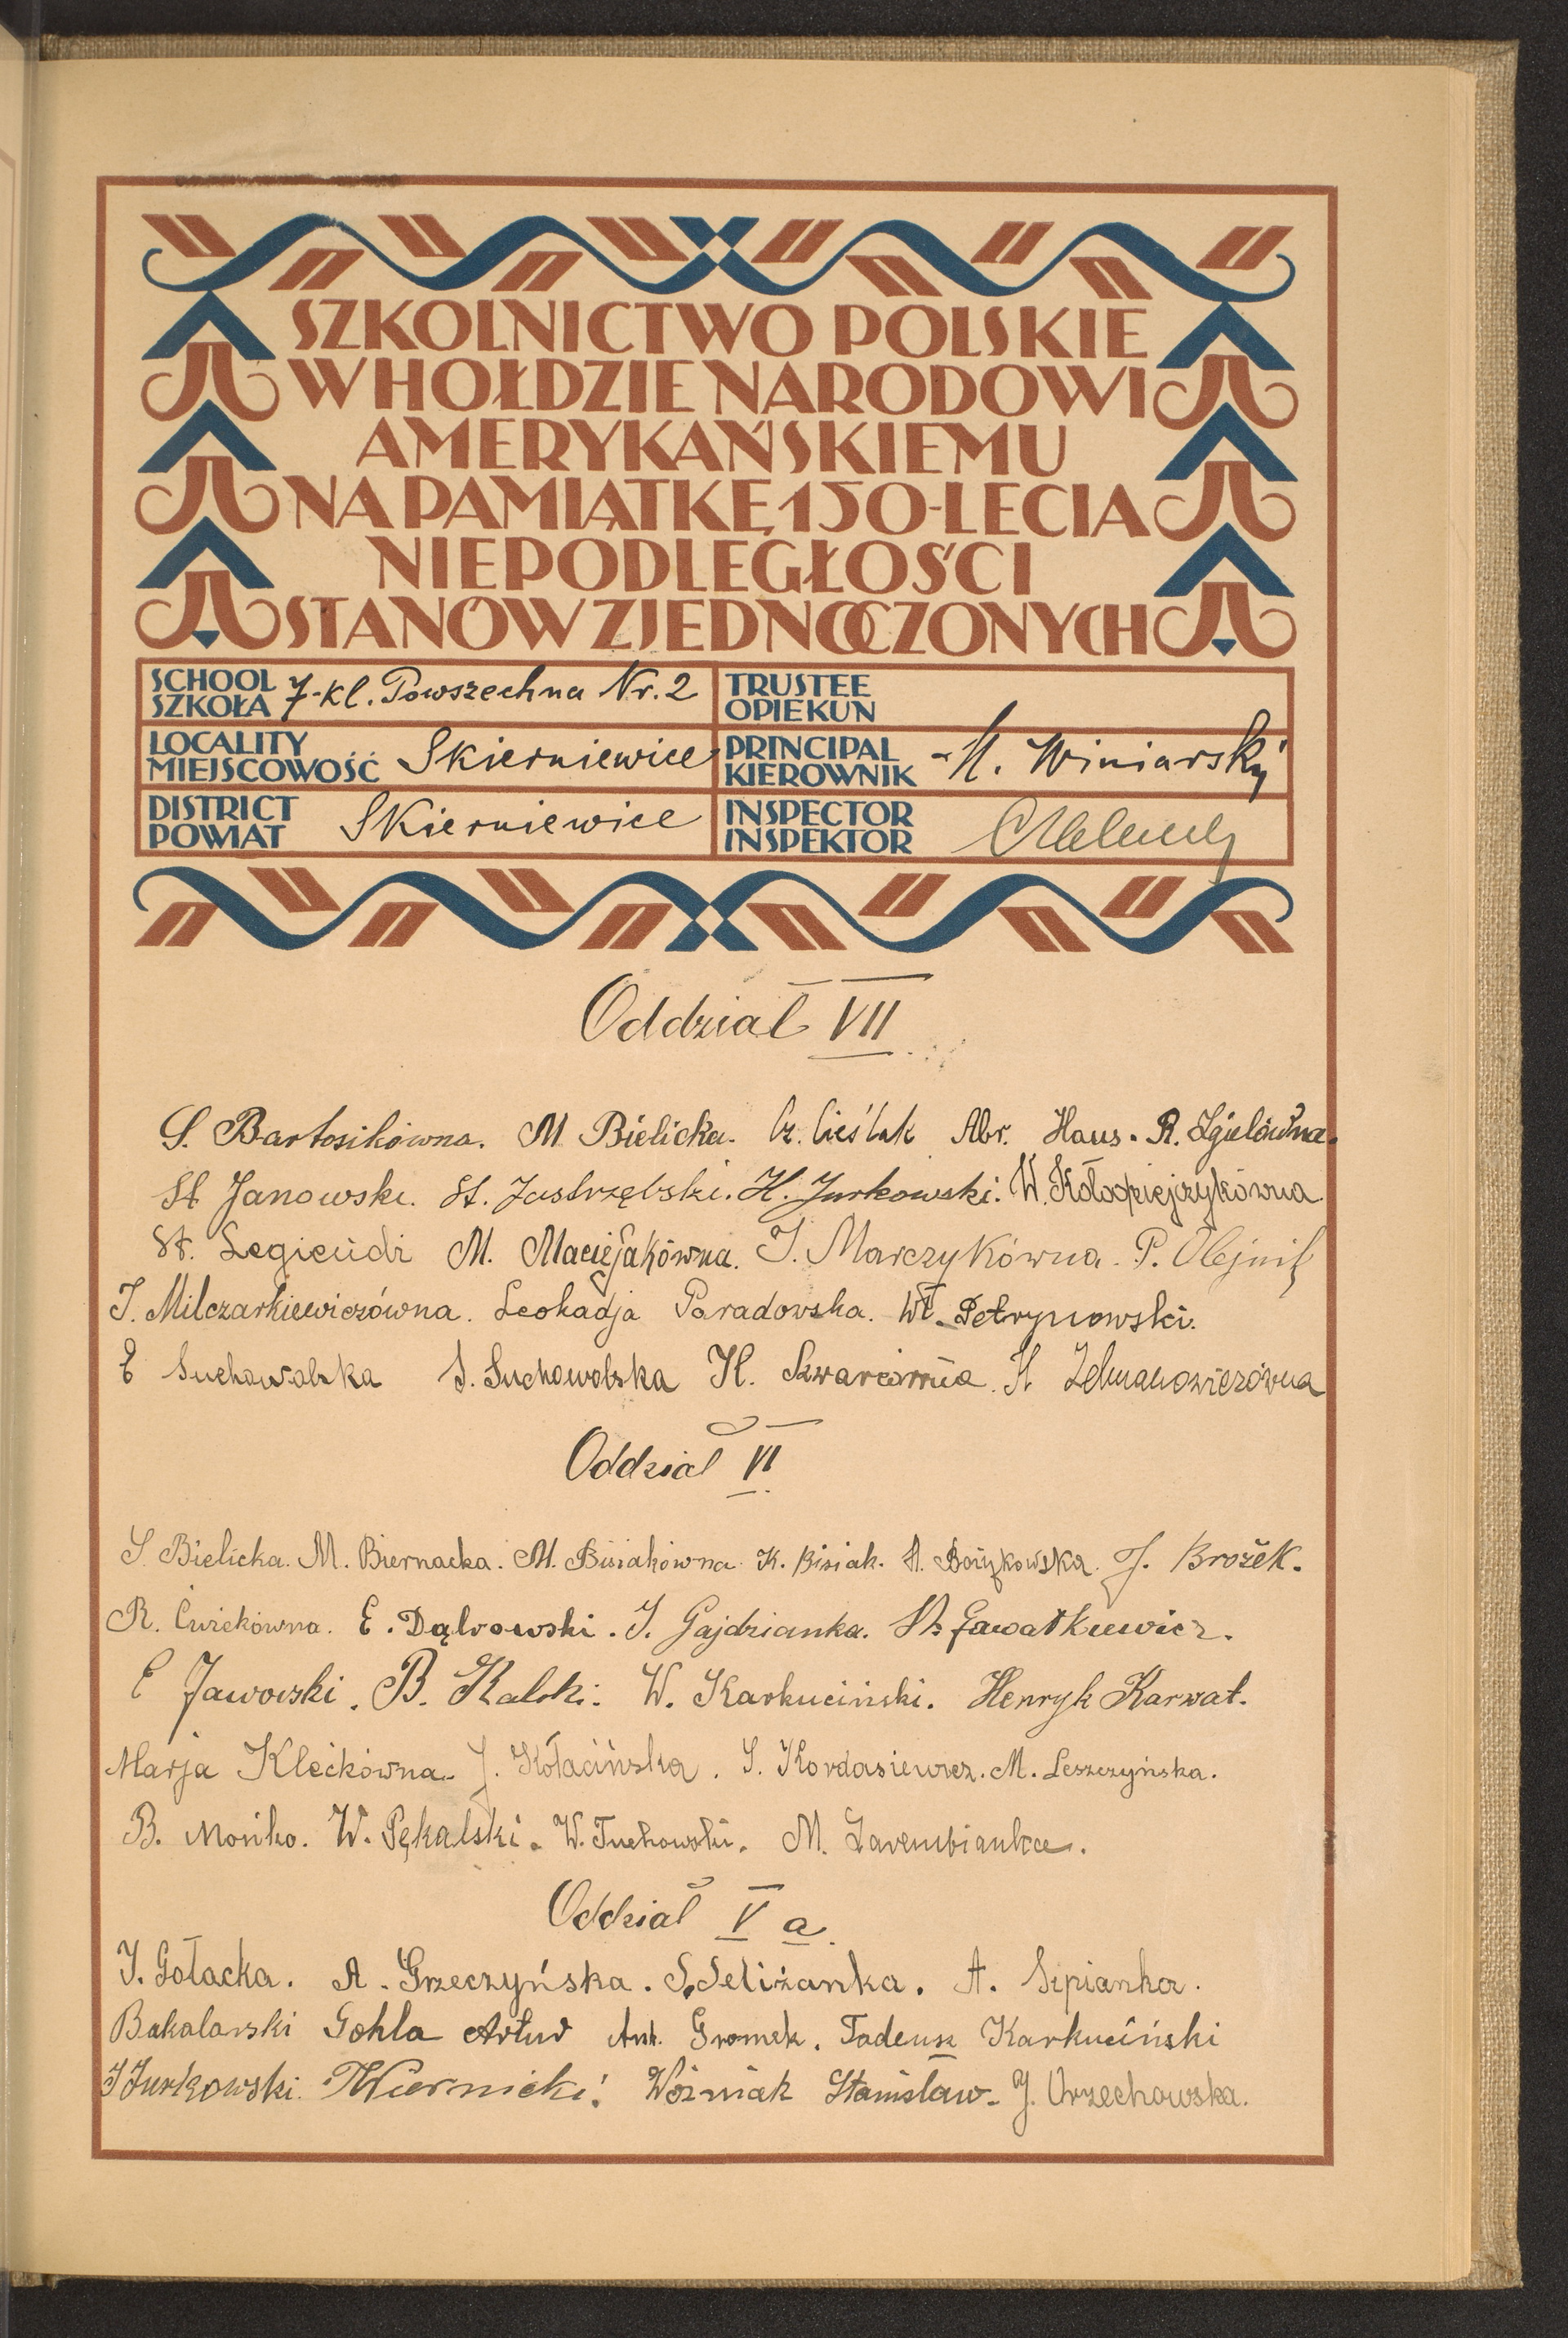 SZKOLNICTWO POLSKIE
W HOŁDZIE NARODOWI
AMERYKAŃSKIEMU
NA PAMIĄTKĘ 150-LECIA
NIEPODLEGŁOŚCI
STANÓW ZJEDNOCZONYCH
SCHOOL
SZKOŁA 7-kl. Powszechna Nr. 2
TRUSTEE
OPIEKUN
LOCALITY
MIEJSCOWOŚĆ Skierniewice
PRINCIPAL
KIEROWNIK St. Winiarski
DISTRICT
POWIAT Skierniewice
INSPECTOR
INSPEKTOR
Oddział VII
S. Bartosikówna. M Bielicka. Cz. Cieślak Abr. Haus. R. Igielówna.
St Janowski. St. Jastrzębski. H. Jurkowski. W. Kołodziejczykówna
St. Legiendź M. Maciejakówna. J. Marczykówna. P. Olejnik
J. Milczarkiewiczówna. Leokadja Paradowska. Wł. Petrynowski.
E Suchowolska S. Suchowolska H. Szwarcówna. H Zelmanowiczówna
Oddział VI
S. Bielicka. M. Biernacka. M. Bisiakówna K. Bisiak. A. Bożykowska. J. Brożek.
R. Ćwiekówna. E. Dąbrowski. J. Gajdzianka. Gawatkiewicz.
E Jaworski. B. Kalski. W. Karkuciński. Henryk Karwat.
Marja Klećkówna. J. Kołacińska. S. Kordasiewicz. M. Leszczyńska.
B. Mońko. W. Pękalski. W. Tuchowski. M. Zarembianka.
Oddział V a.
J. Gołacka. A. Grzeczyńska. S. Seliżanka. A. Szpianka.
Bakalarski Gohla Artur Ant. Gromek. Tadeusz Karkuciński
J Jurkowski. Wiernicki. Woźniak Stanisław. J. Orzechowska.